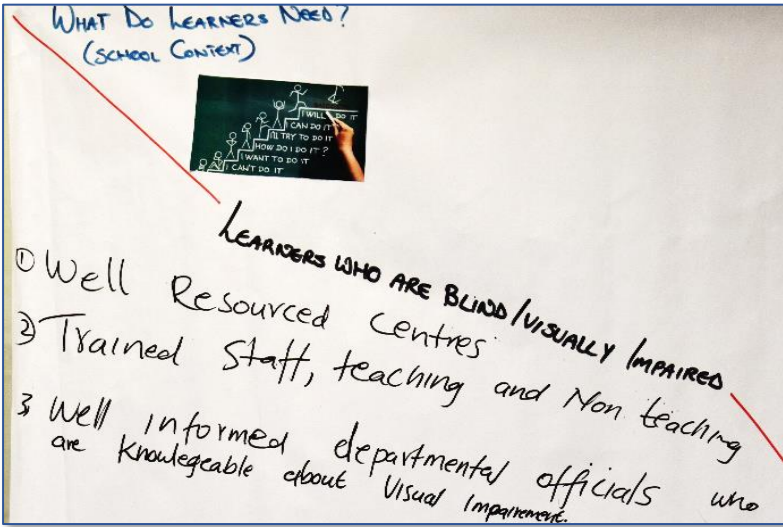 WHAT DO LEARNERS NEED?
(SCHOOL CONTEXT)
I WILL DO IT
I CAN DO IT
I'LL TRY TO DO IT
HOW DO I DO IT?
I WANT TO DO IT
I CAN'T DO IT
LEARNERS WHO ARE BLIND/VISUALLY IMPAIRED
① Well Resourced Centres
② Trained Staff, teaching and Non teaching
3, Well informed departmental officials who
are Knowlegeable about Visual Impairement.